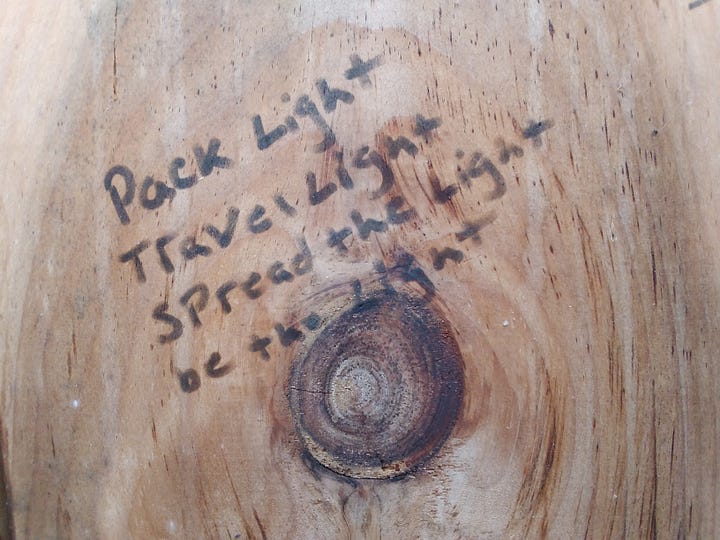 Pack Light
Travel Light
Spread the Light
be the Light